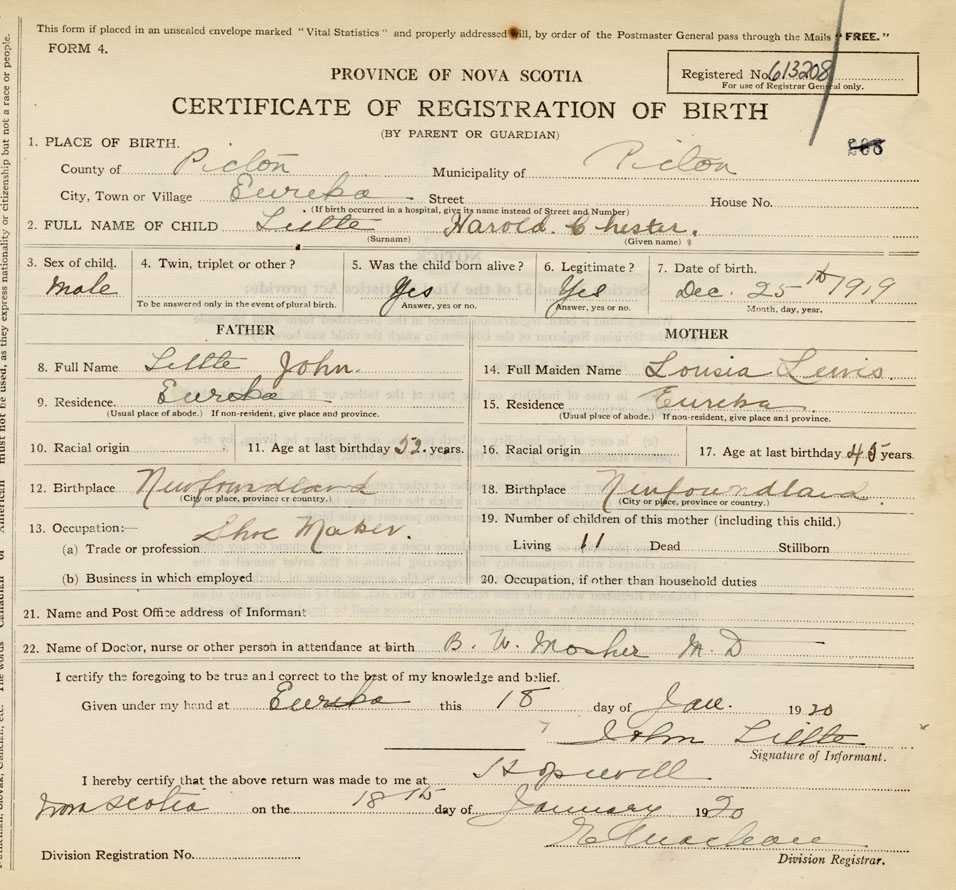 This form if placed in an unsealed envelope marked "Vital Statistics" and properly addressed will, by order of the Postmaster General pass through the Mails "FREE."
FORM 4.
PROVINCE OF NOVA SCOTIA
Registered No. 613208
For use of Registrar General only.
CERTIFICATE OF REGISTRATION OF BIRTH
(BY PARENT OR GUARDIAN)
1. PLACE OF BIRTH.
County of Pictou Municipality of Pictou
City, Town or Village Eureka Street House No.
(If birth occurred in a hospital, give its name instead of Street and Number)
2. FULL NAME OF CHILD Little Harold Chester.
(Surname) (Given name)
3. Sex of child. 4. Twin, triplet or other? 5. Was the child born alive? 6. Legitimate? 7. Date of birth.
Male Yes Yes Dec. 25th 1919
To be answered only in the event of plural birth. Answer, yes or no. Answer, yes or no. Month, day, year.
FATHER MOTHER
8. Full Name Little John. 14. Full Maiden Name Lousia Lewis
9. Residence. Eureka 15. Residence Eureka
(Usual place of abode.) If non-resident, give place and province. (Usual place of abode.) If non-resident, give place and province.
10. Racial origin 11. Age at last birthday 52 years. 16. Racial origin 17. Age at last birthday 45 years
12. Birthplace Newfoundland 18. Birthplace Newfoundland
(City or place, province or country.) (City or place, province or country.)
13. Occupation:— Shoe Maker. 19. Number of children of this mother (including this child.)
(a) Trade or profession Living 11 Dead Stillborn
(b) Business in which employed 20. Occupation, if other than household duties
21. Name and Post Office address of Informant
22. Name of Doctor, nurse or other person in attendance at birth B. W. Mosher M. D
I certify the foregoing to be true and correct to the best of my knowledge and belief.
Given under my hand at Eureka this 18 day of Jan. 1920
John Little
Signature of Informant.
I hereby certify that the above return was made to me at Hopewell
Nova Scotia on the 18th day of January 1920
Division Registration No.
Division Registrar.
must not be used, as they express nationality or citizenship but not a race or people.